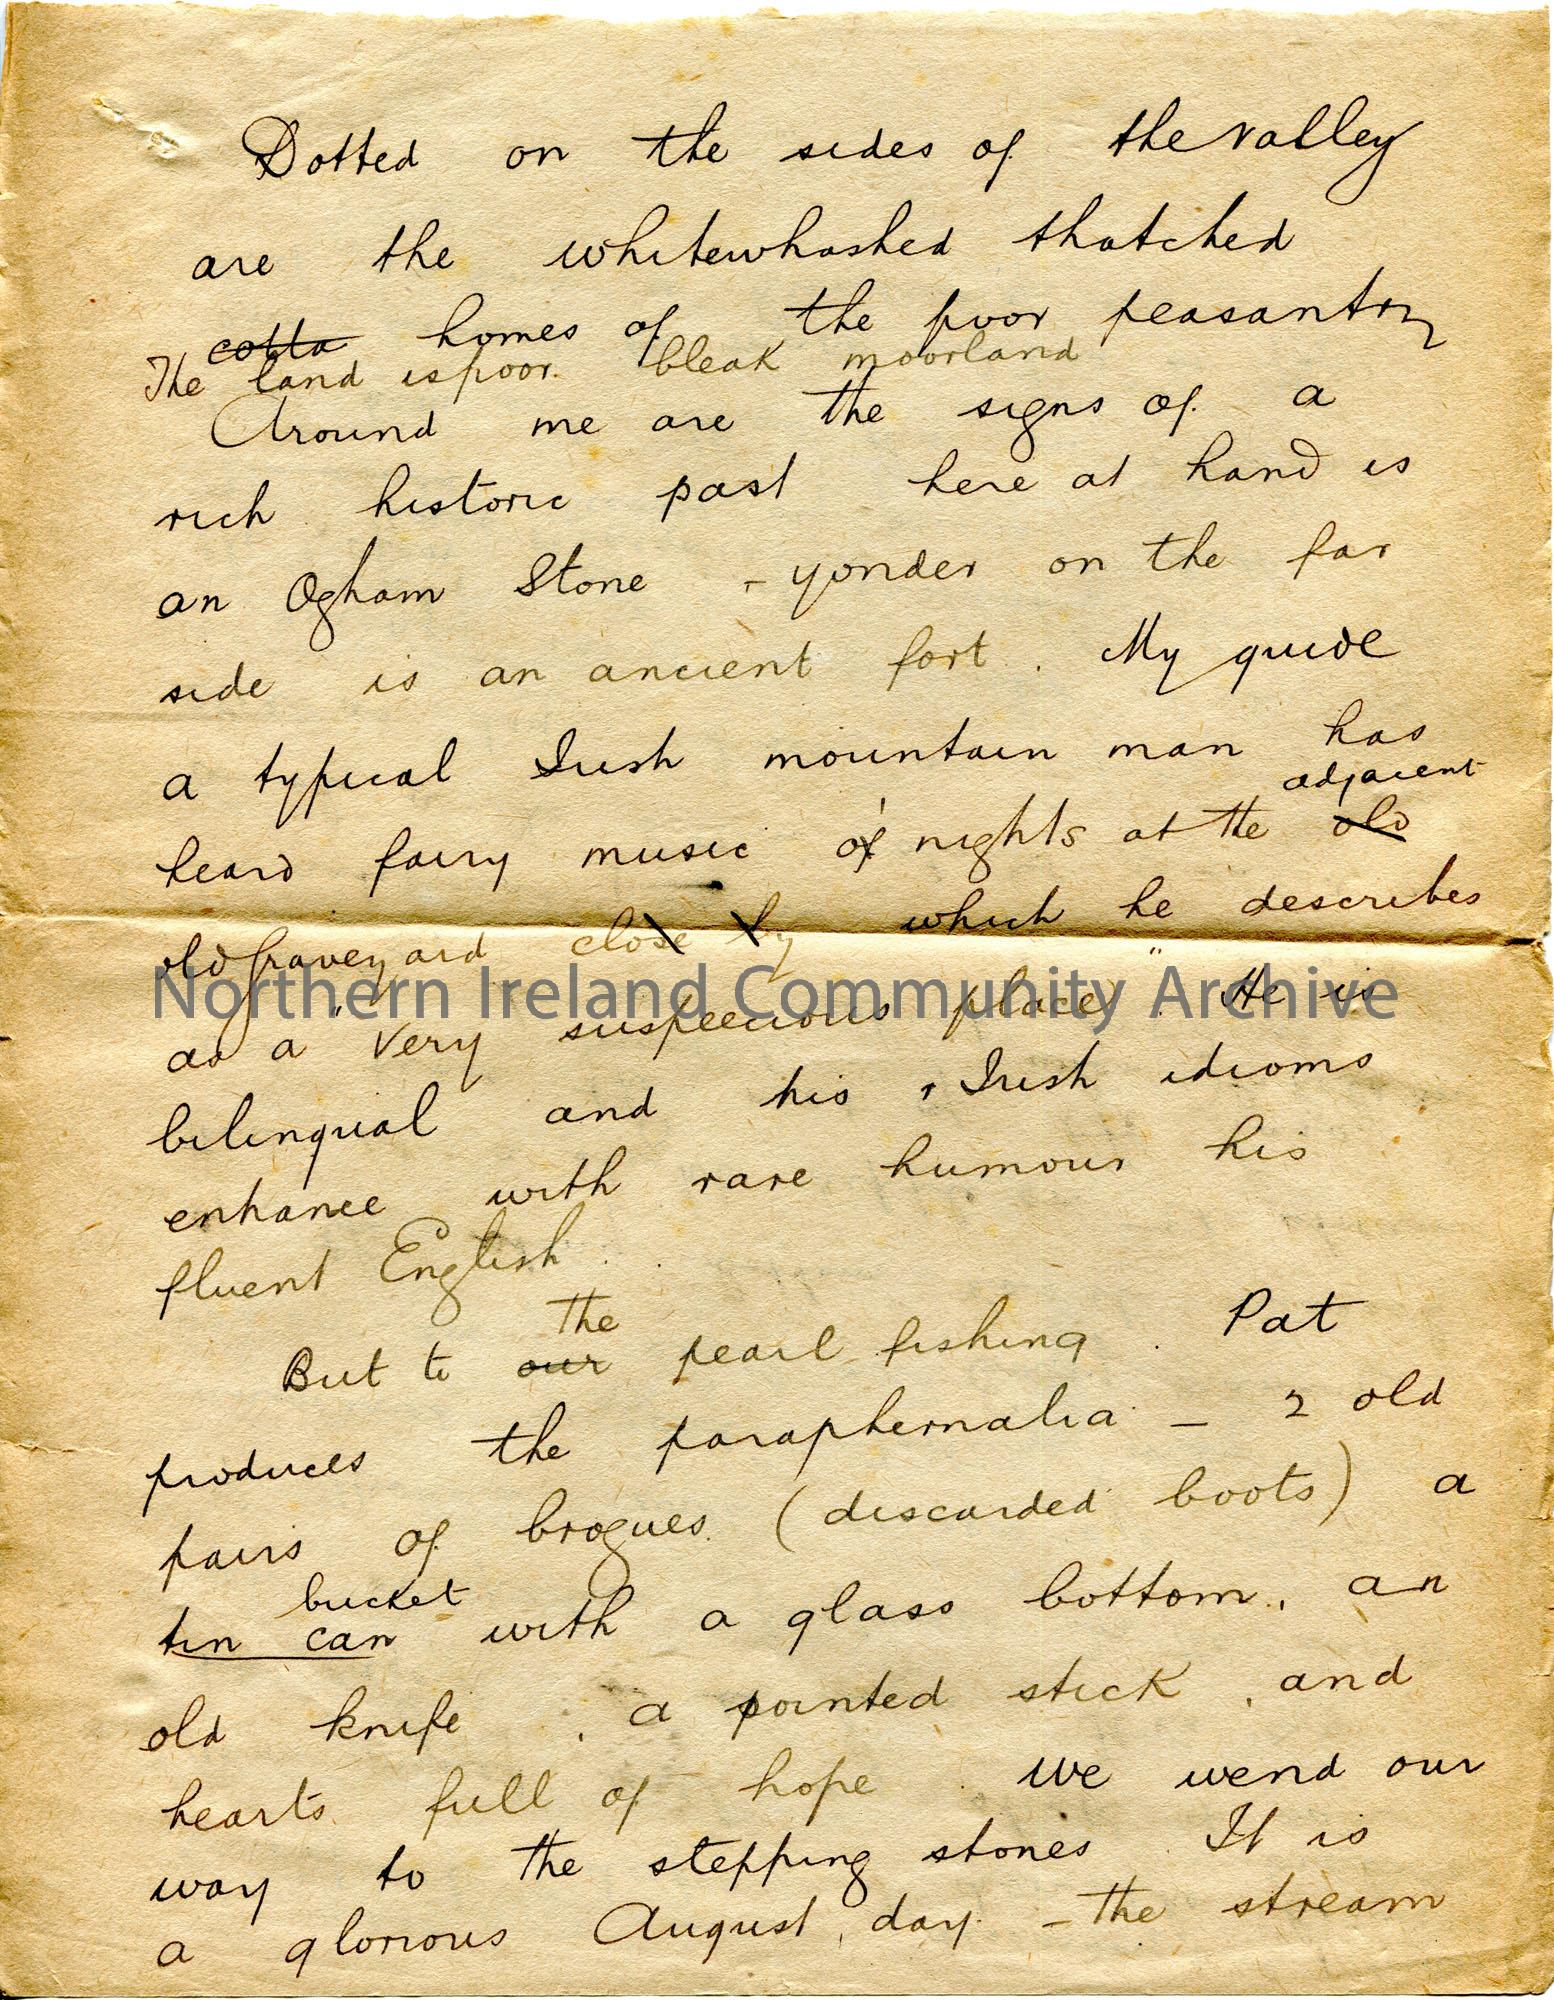 Dotted on the sides of the valley
are the whitewhashed thatched
cotta homes of the poor peasantry
The land is poor. bleak moorland
Around me are the signs of a
rich historic past here at hand is
an Ogham Stone - yonder on the far
side is an ancient fort. My guide
a typical Irish mountain man has
adjacent
heard fairy music of nights at the old
old graveyard close by which he describes
as a "very suspeecious place". He is
Northern Ireland Community Archive
bilingual and his Irish idioms
enhance with rare humour his
fluent English.
the
But to our pearl fishing. Pat
produces the paraphernalia - 2 old
pairs of brogues (discarded boots) a
bucket
tin can with a glass bottom, an
old knife, a pointed stick, and
hearts full of hope. we wend our
way to the stepping stones. It is
a glorious August day - the stream